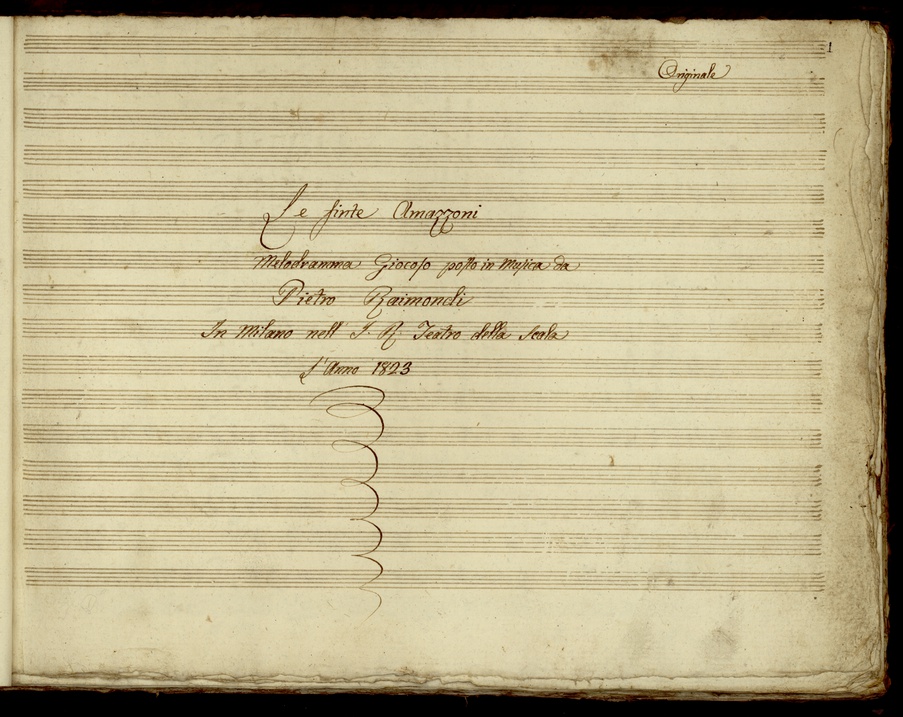 1
Originale
Le finte Amazzoni
Melodramma Giocoso posto in Musica da
Pietro Raimondi
In Milano nell' I. R. Teatro della Scala
L'Anno 1823